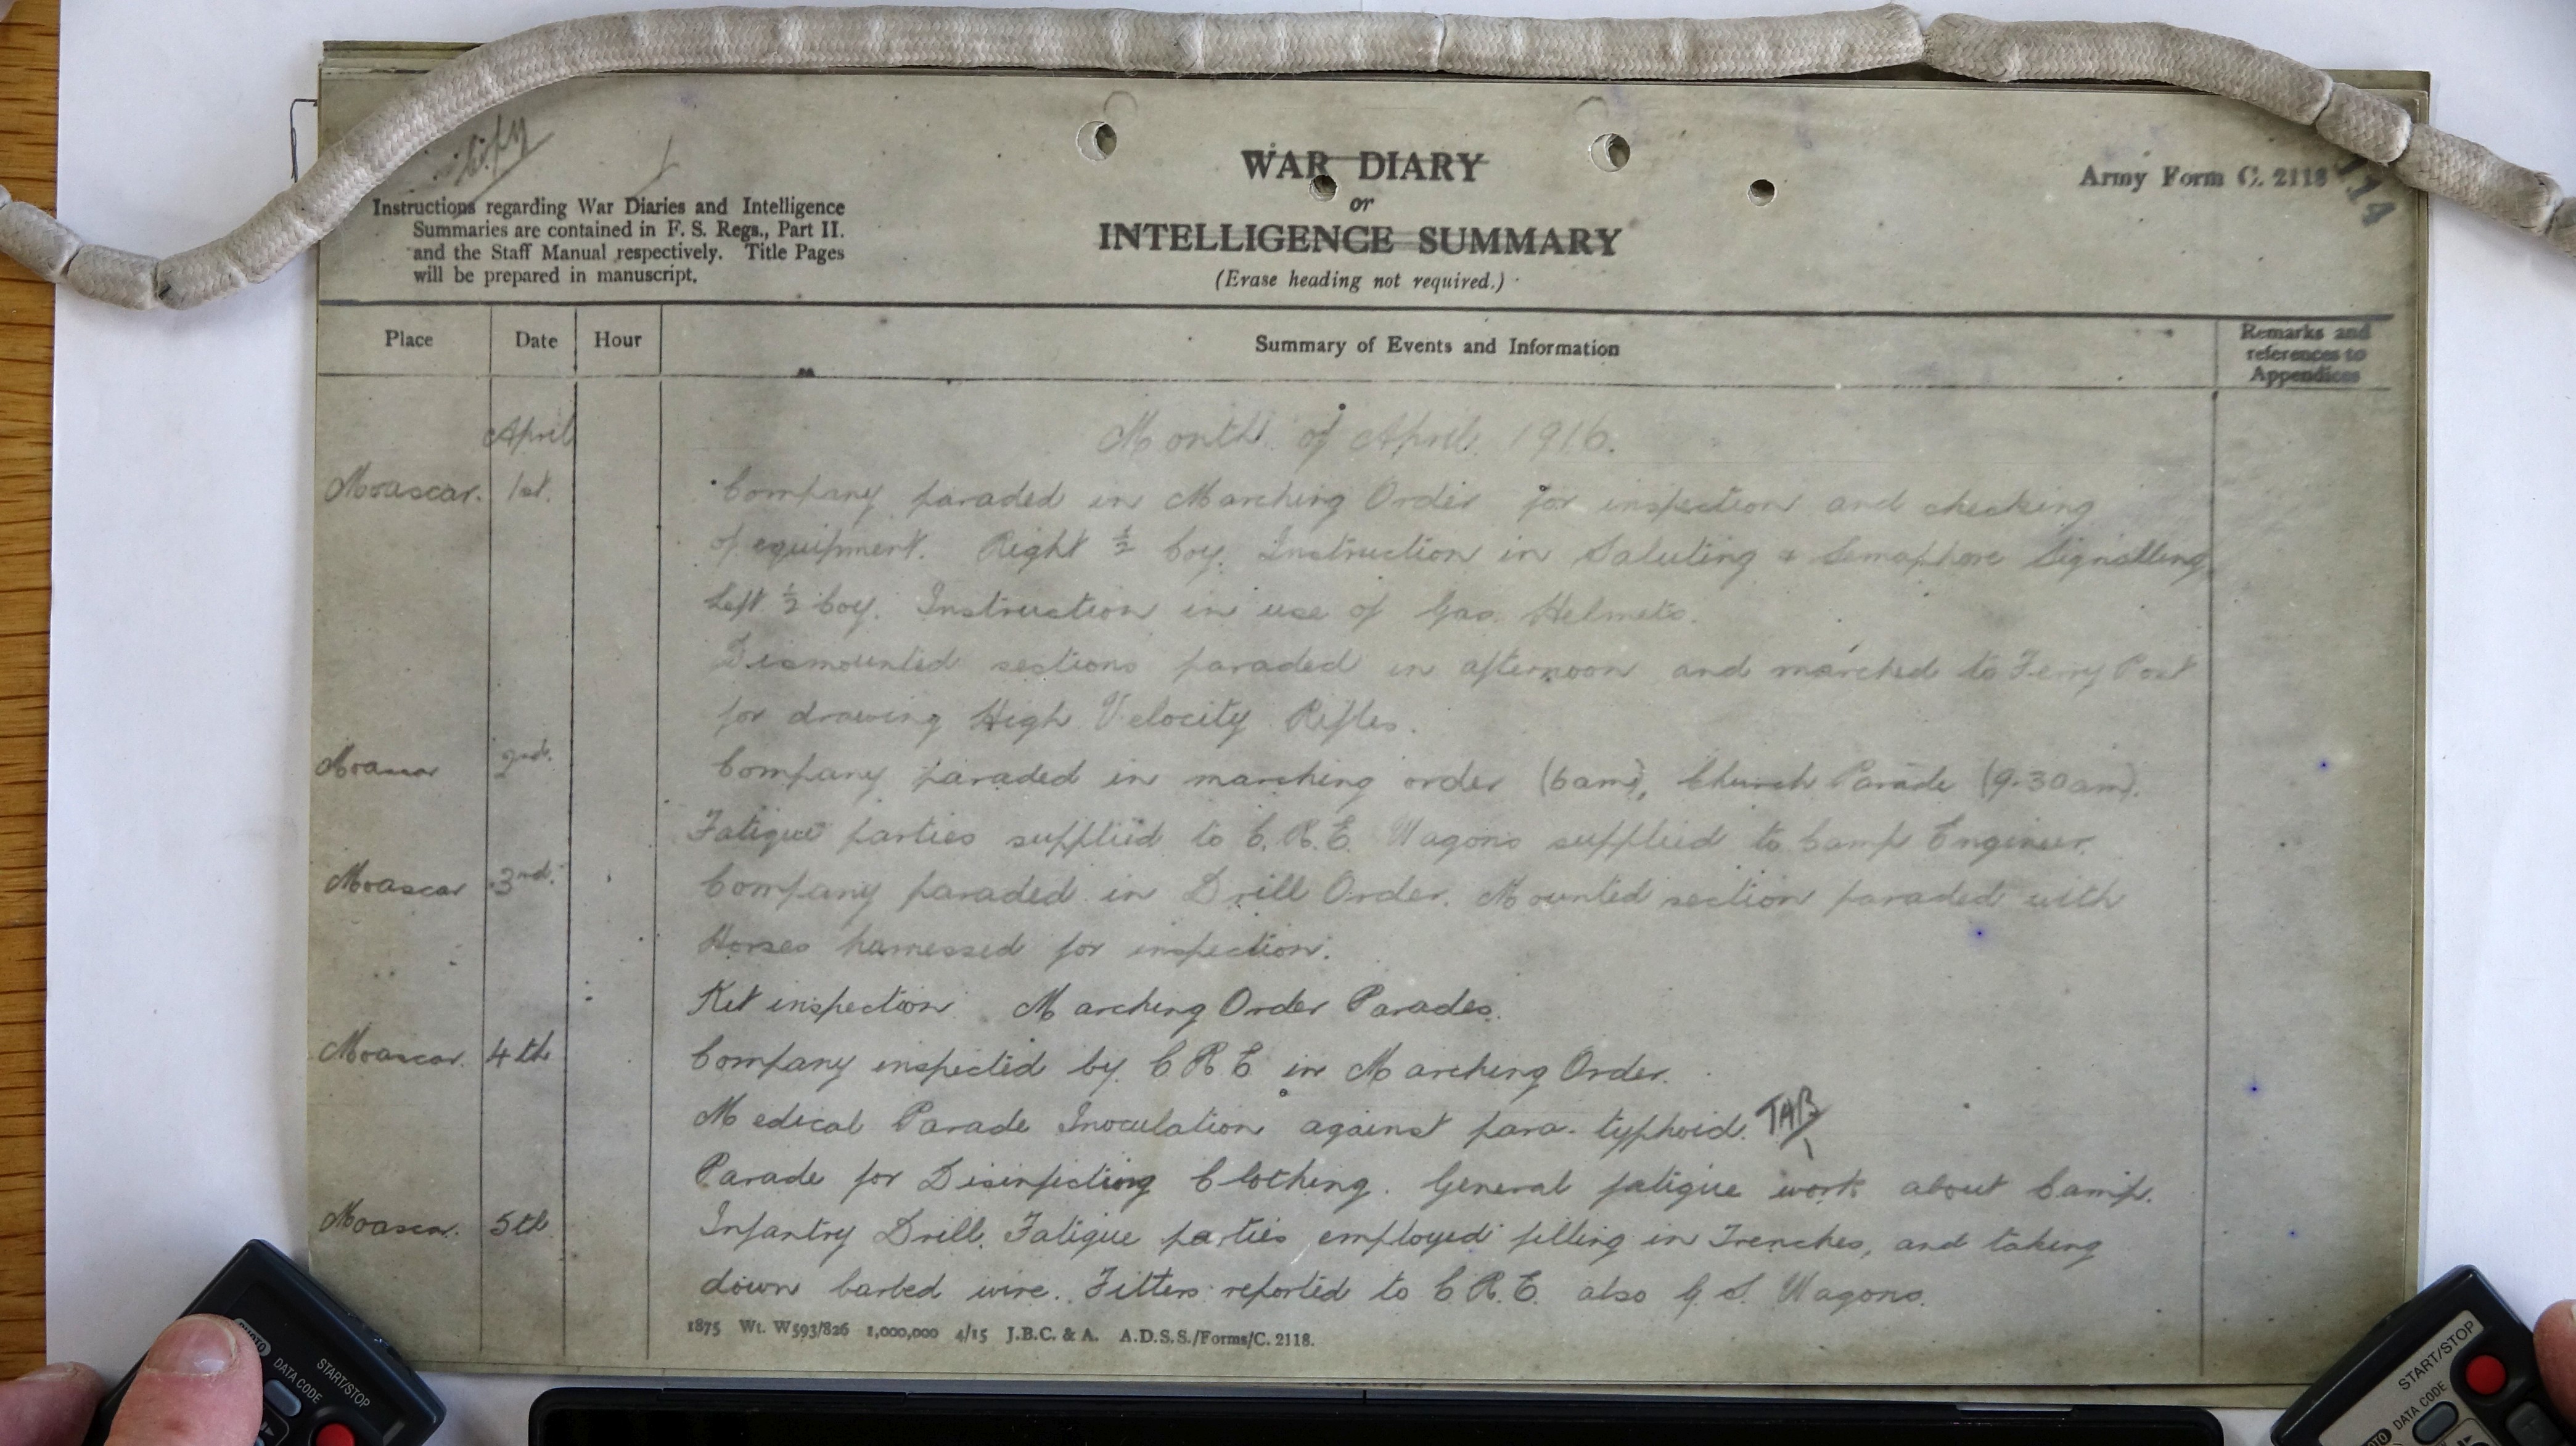 Instructions regarding War Diaries and Intelligence
Summaries are contained in F. S. Regs., Part II.
and the Staff Manual respectively. Title Pages
will be prepared in manuscript.
WAR DIARY
or
INTELLIGENCE SUMMARY
(Erase heading not required.)
Army Form C. 2118
114
Place Date Hour Summary of Events and Information Remarks and
references to
Appendices
April Month of April 1916.
Moascar. 1st. Company paraded in Marching Order for inspection and checking
of equipment. Right ½ Coy. Instruction in Saluting & Semaphore Signalling
Left ½ Coy. Instruction in use of Gas Helmets.
Dismounted sections paraded in afternoon and marched to Ferry Post
for drawing High Velocity Rifles.
Moascar 2nd. Company paraded in marching order (6am), Church Parade (9.30am).
Fatigue parties supplied to C.R.E. Wagons supplied to Camp Engineer.
Moascar 3rd. Company paraded in Drill Order. Mounted section paraded with
Horses harnessed for inspection.
Kit inspection. Marching Order Parades.
Moascar. 4th Company inspected by C R E in Marching Order.
Medical Parade Inoculation against para-typhoid. TAB
Parade for Disinfecting Clothing. General fatigue work about Camp.
Moascar. 5th Infantry Drill. Fatigue parties employed filling in Trenches, and taking
down barbed wire. Fitters reported to C.R.E. also G.S. Wagons.
1875 Wt. W593/826 1,000,000 4/15 J.B.C. & A. A.D.S.S./Forms/C. 2118.
PHOTO
DATA CODE
START/STOP
START/STOP
DATA CODE